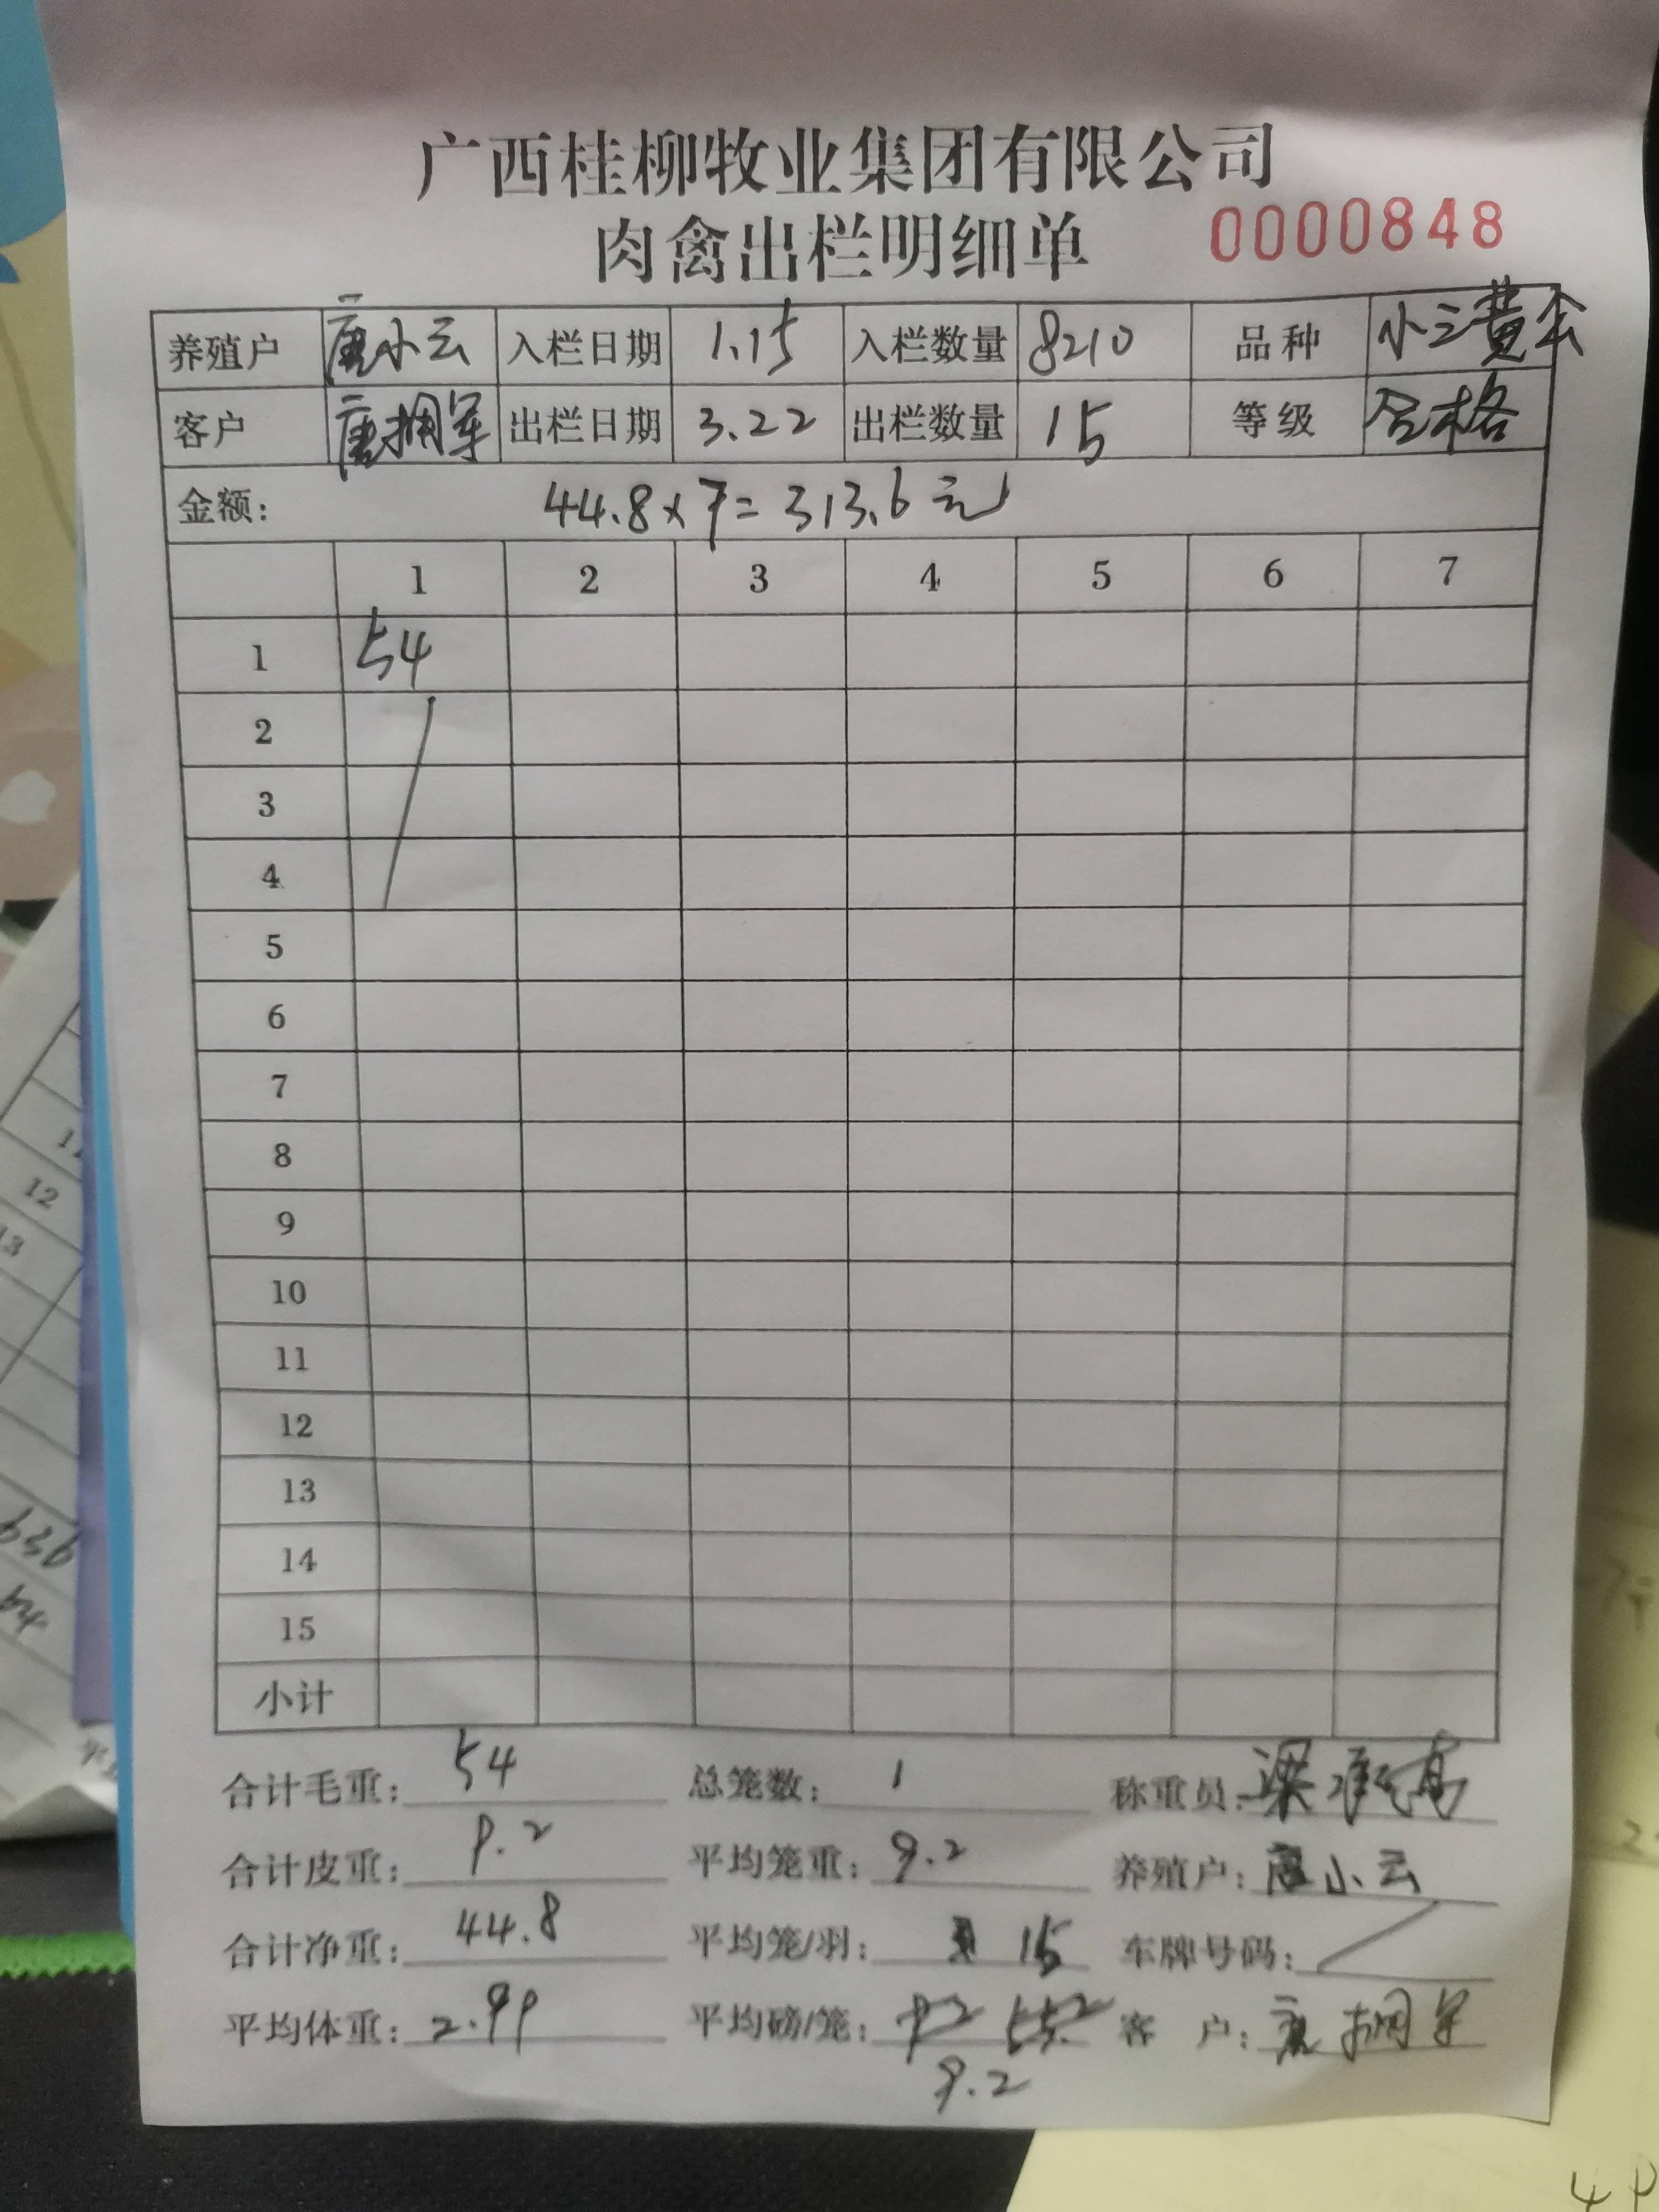 广西桂柳牧业集团有限公司
肉禽出栏明细单 0000848
养殖户 唐小云 入栏日期 1.15 入栏数量 8210 品种 小三黄公
客户 唐拥军 出栏日期 3.22 出栏数量 15 等级 合格
金额: 44.8×7=313.6元
1 2 3 4 5 6 7
1 54
2
3
4
5
6
7
8
9
10
11
12
13
14
15
小计
合计毛重: 54 总笼数: 1 称重员: 梁
合计皮重: 9.2 平均笼重: 9.2 养殖户: 唐小云
合计净重: 44.8 平均笼/羽: 15 车牌号码:
平均体重: 2.99 平均磅/笼: 客 户: 唐拥军
9.2
11
12
13
636
54